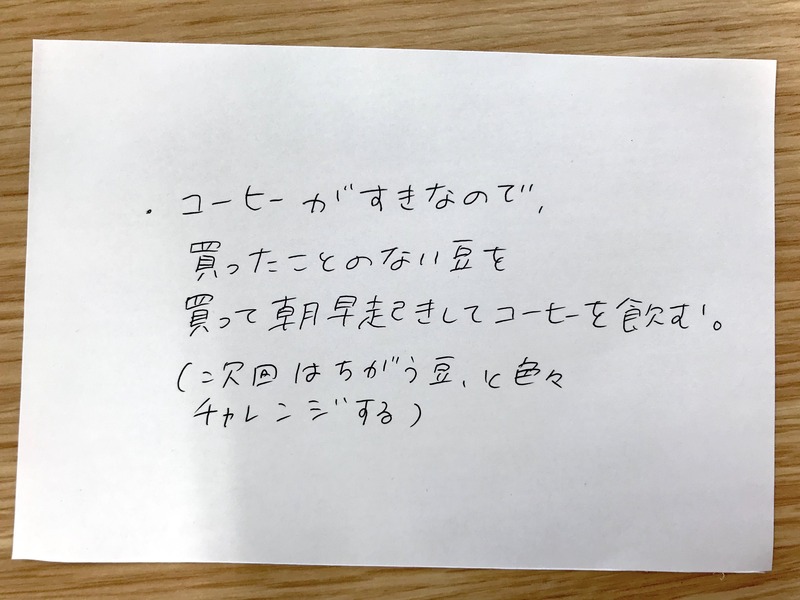 ・コーヒーがすきなので、
買ったことのない豆を
買って朝早起きしてコーヒーを飲む。
(次回はちがう豆、と色々
チャレンジする)